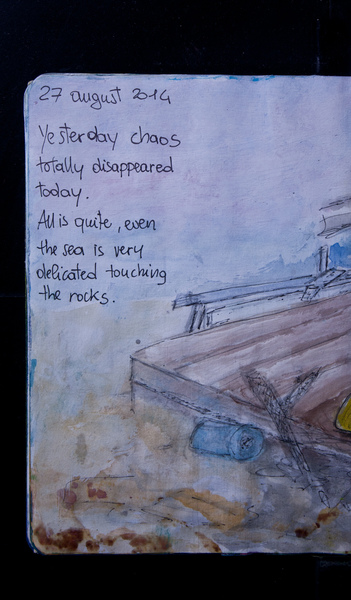 27 august 2014
Yesterday chaos
totally disappeared
today.
All is quite, even
the sea is very
delicated touching
the rocks.